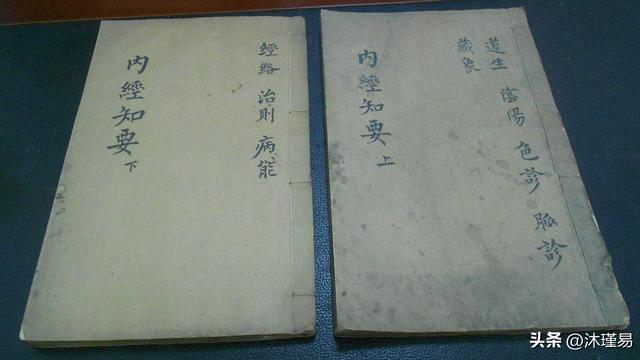 道生
藏象
陰陽 色診 脈診
内經知要 上
經絡 治則 病能
内經知要 下
头条 @沐瑾易